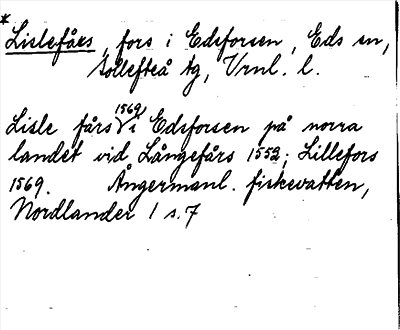 * Lislefårs, fors i Edsforsen, Eds sn,
Sollefteå tg, Vrnl. l.
Lisle fårs 1569 i Edsforsen på norra
landet vid Långefårs 1552; Lillefors
1569. Ångermanl. fiskevatten,
Nordlander 1 s. 7